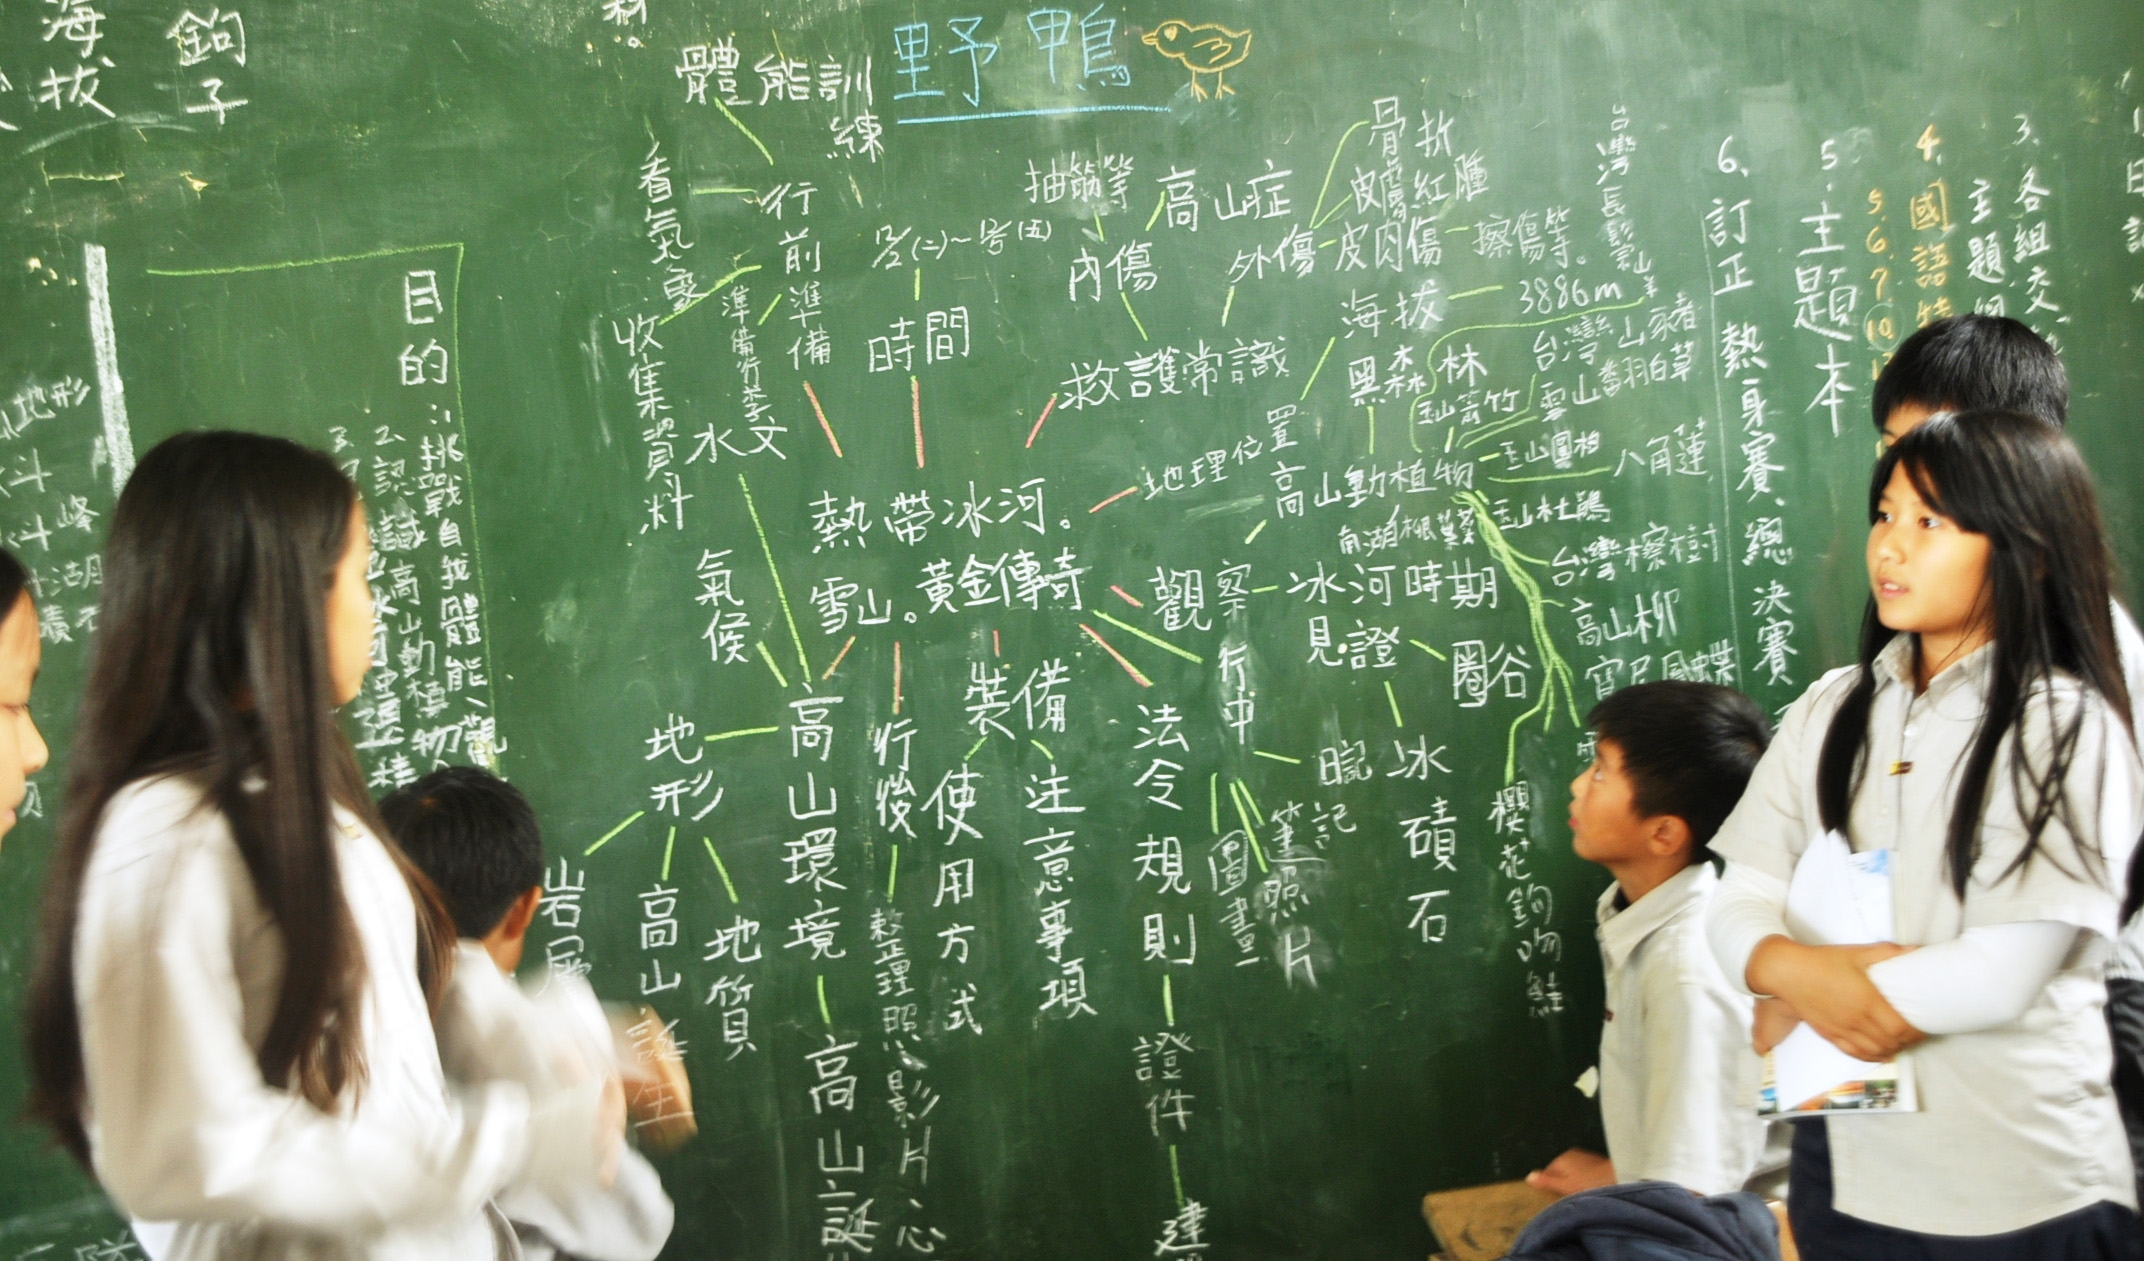 海拔
鉤子
野鴨
體能訓練
看氣象
行前準備
收集資料
準備行李
12/2(二)~12/5(五)
時間
抽筋等
高山症
內傷
外傷
骨折
皮膚紅腫
皮肉傷
擦傷等。
救護常識
海拔
3886m
台灣長鬃山羊
黑森林
玉山箭竹
台灣
雪山翻白草
玉山圓柏
八角蓮
地理位置
高山動植物
玉山杜鵑
南湖柳葉菜
台灣檫樹
高山柳
櫻花鉤吻鮭
水文
氣候
熱帶冰河。
雪山。黃金傳奇
觀察
冰河時期
見證
圈谷
冰磧石
行中
日記
筆記
圖畫
照片
高山環境
高山誕
地形
岩層
高山誕生
地質
行後
整理照影片心
裝備
使用方式
注意事項
法令規則
證件
目的:
1.挑戰自我體能、觀
2.認識高山動植物
地形
斗
斗峰
湖
3.各組交
主題網
4.國語
5.6.7.10
5.主題本
6.訂正熱身賽、總決賽